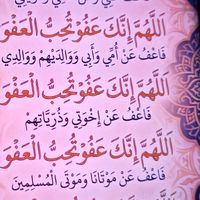 اَللَّهُمَّ إِنَّكَ عَفُوٌّ تُحِبُّ الْعَفْوَ
فَاعْفُ عَنْ أُمِّي وَأَبِي وَوَالِدَيْهِمْ وَوَالِدِي
اَللَّهُمَّ إِنَّكَ عَفُوٌّ تُحِبُّ الْعَفْوَ
فَاعْفُ عَنْ إِخْوَتِي وَذُرِّيَّاتِهِمْ
اَللَّهُمَّ إِنَّكَ عَفُوٌّ تُحِبُّ الْعَفْوَ
فَاعْفُ عَنْ مَوْتَانَا وَمَوْتَى الْمُسْلِمِينَ